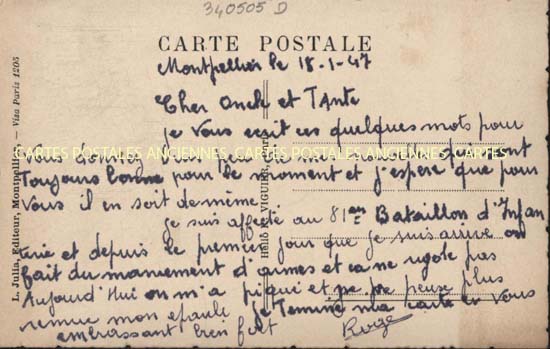 340505 D
CARTE POSTALE
Montpellier le 18-1-47
Cher Oncle et TAnte
je vous ecrit ces quelques mots pour
vous donner de mes nouvelles qui sont
Toujours bonne pour le moment et j'espere que pour
Vous il en soit de même
je suis affecté au 81em Bataillon d'Infan
terie et depuis le premier jour que je suis arrivé on
fait du maniement d'armes et ca ne rigole pas
Aujourd'Hui on m'a piqué et ne pe peuse plus
remue mon epaule je Termine ma carte en vous
embrassant bien fort
CARTES POSTALES ANCIENNES CARTES POSTALES ANCIENNES CARTES
L. Julia, Editeur, Montpellier. — Visa Paris 1205
HELIO E. VIGUIER